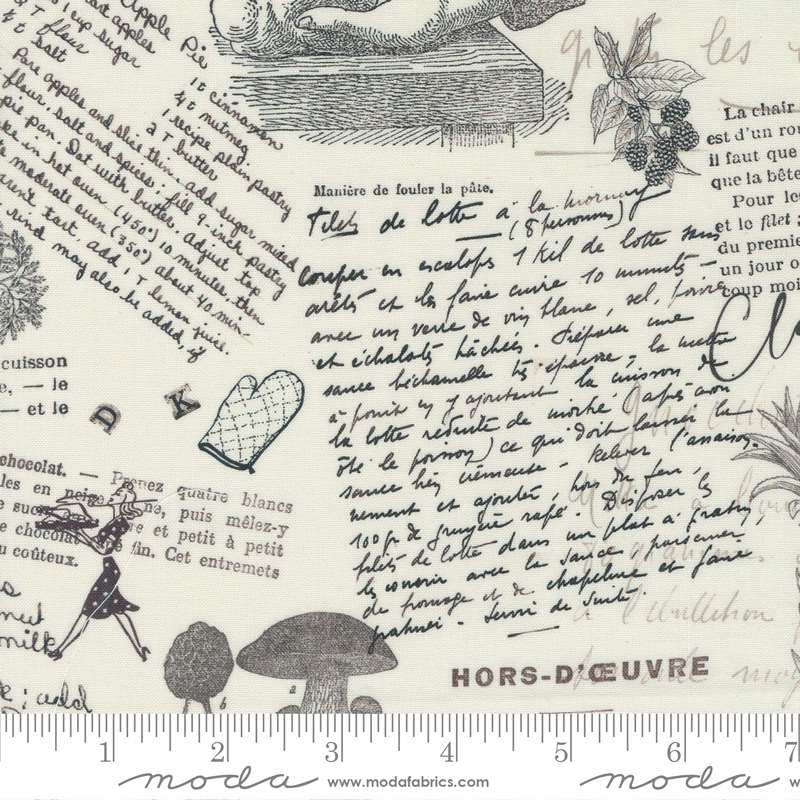 Apple Pie
tart apples
1 cup sugar
T flour
¼ t salt
1t cinnamon
¼ t nutmeg
2 T butter
1 recipe plain pastry
Pare apples and slice thin. add sugar mixed
flour, salt and spices; fill 9-inch pastry
pie pan. Dot with butter. adjust top
in hot oven (450°) 10 minutes, then
moderate oven (350°) about 40 min-
aren't tart, add 1 T lemon juice.
rind may also be added, if
cuisson
e, — le
— et le
D K
chocolat. — Prenez quatre blancs
les en neige, puis mêlez-y
e sucre et petit à petit
e chocolat fin. Cet entremets
u coûteux.
nut
milk
; add
Manière de fouler la pâte.
filets de lotte à la mornay
(8 personnes)
couper en escalops 1 kil de lotte sans
arêts et les faire cuire 10 minuts —
avec un verre de vin blanc, sel, poivre
et échalots hâchées. Préparer une
sauce béchamelle très épaisse, la mettre
à point en y ajoutant la cuisson de
la lotte réduite de moitié (après avoir
ôté le poisson) ce qui doit laisser la
sauce très crémeuse. Relever l'assaison-
nement et ajouter, hors du feu,
100 gr de gruyère rapé. Disposer les
filets de lotte dans un plat à gratin,
les couvrir avec la sauce, parsemer
de fromage et de chapelure et faire
gratiner. Servir de suite.
HORS-D'ŒUVRE
les
La chair
est d'un rou
il faut que
que la bête
Pour les
et le filet ;
du premie
un jour o
coup moi
a
b
1 2 3 4 5 6 7
moda www.modafabrics.com moda www.modafabrics.com